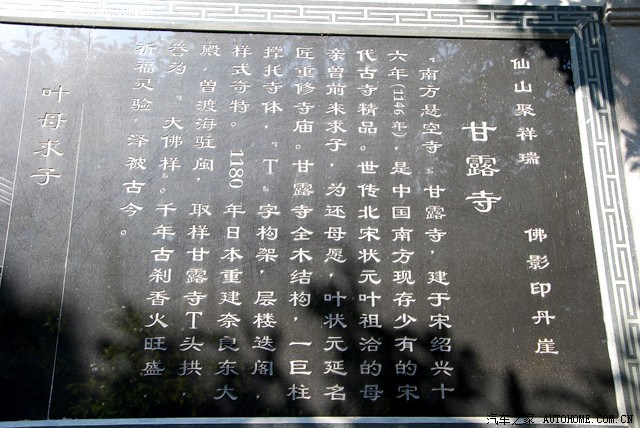 仙山聚祥瑞 佛影印丹崖
甘露寺
“南方悬空寺”甘露寺，建于宋绍兴十
六年(1146年)，是中国南方现存少有的宋
代古寺精品。世传北宋状元叶祖洽的母
亲曾前来求子，为还母愿，叶状元延名
匠重修寺庙。甘露寺全木结构，一巨柱
撑托寺体，“T”字构架，层楼迭阁，
样式奇特。1180年日本重建奈良东大
殿，曾渡海驻闽，取样甘露寺T头拱，
誉为“大佛样”。千年古刹香火旺盛，
祈福灵验，泽被古今。
叶母求子
汽车之家 AUTOHOME.COM.CN